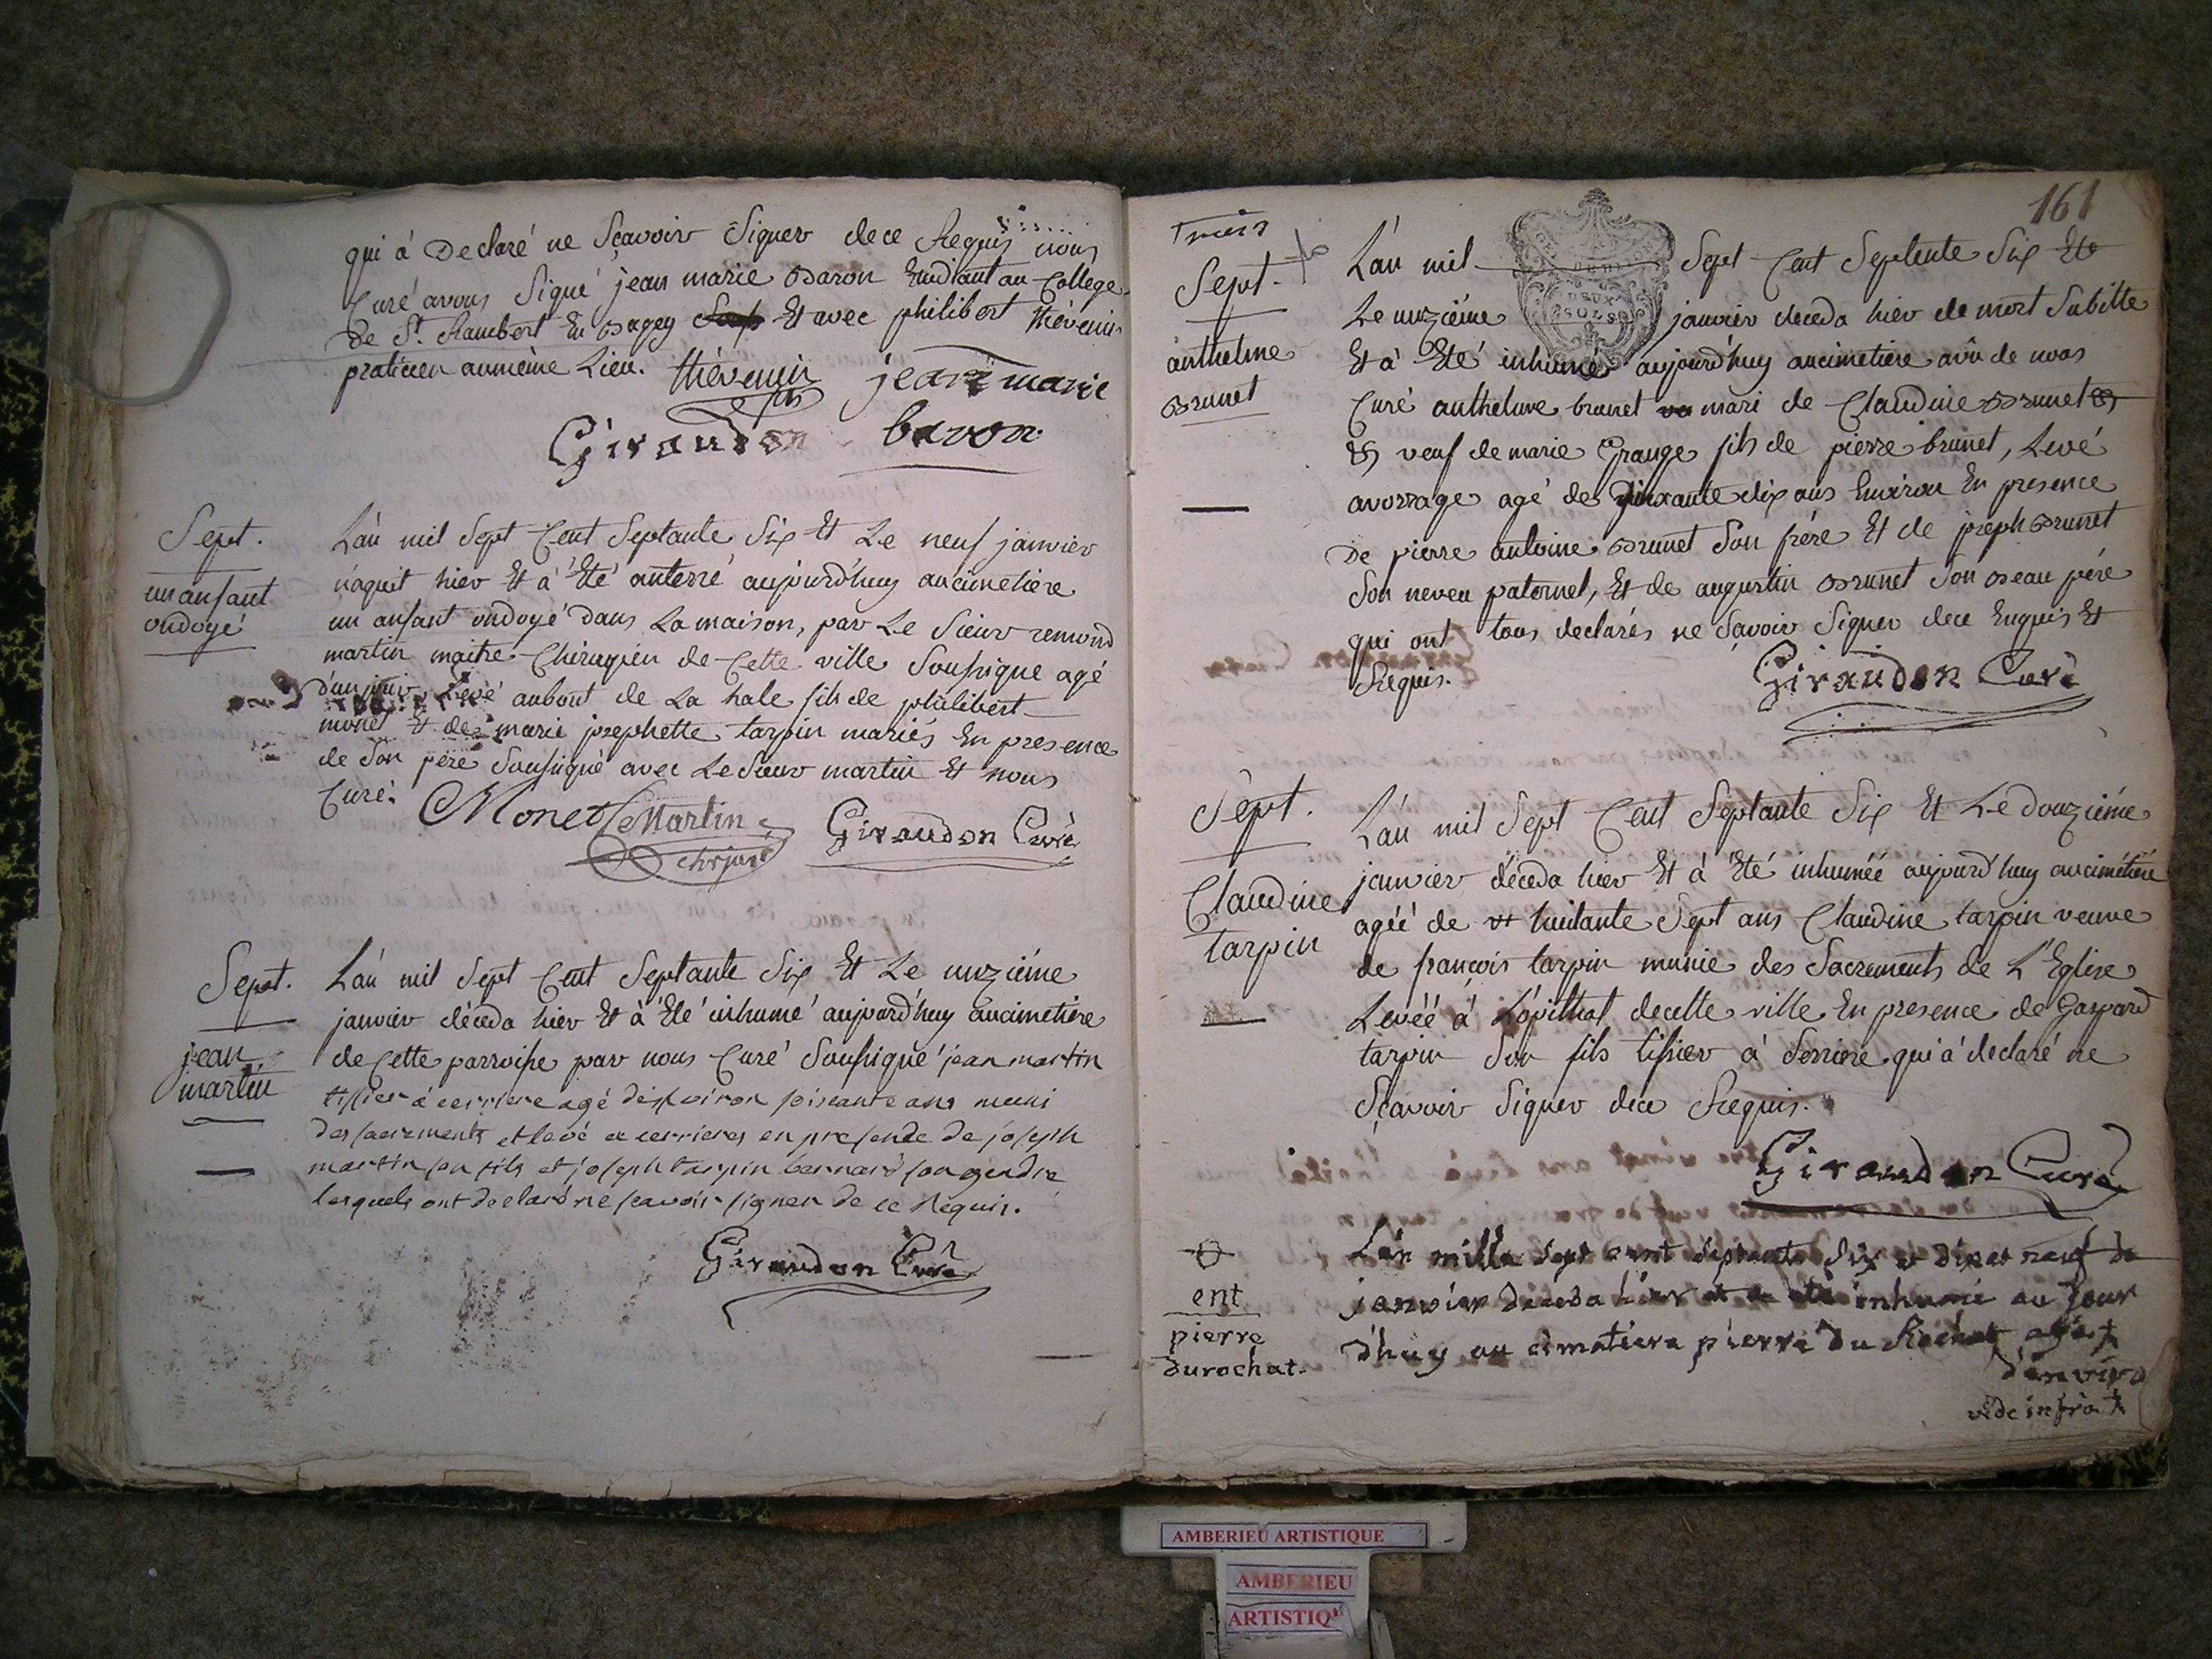 qui à Declaré ne Sçavoir Signer dece Requis nous
Curé avons Signé jean marie Baron Etudiant au College
De St. Rambert En Bugey Et avec philibert thévenin
praticien aumême Lieu. thévenin jean marie
fils
Giraudon baron
Sept.
un anfant
ondoyé
L'an mil Sept Cent Septante Six Et Le neuf janvier
naquit hier Et à Eté anterré aujourd'huy aucimetiere
un anfant ondoyé dans La maison, par Le Sieur remond
martin maitre Chirugien de Cette ville Soussigne agé
d'un jour Levé aubout de La hale fils de philibert
monet Et de marie josephette tarpin mariés En presence
de Son péré Soussigné avec Le Sieur martin Et nous
Curé. Monet Martin Giraudon Curé
chirjurg
Sept.
jean
martin
L'an mil Sept Cent Septante Six Et Le unziéme
janvier déceda hier Et à Eté inhumé aujourd'huy aucimetiére
de Cette parroisse par nous Curé Soussigné jean martin
tissier a cerriere agé denviron soixante ans muni
des sacrements et levé a cerrieres en presence de joseph
martin son fils et joseph tarpin bernard son gendre
lesquels ont declaré ne scavoir signer de ce Requis.
Giraudon Curé
161
Trois
Sept.
anthelme
Brunet
L'an mil Sept Cent Septente Six Et
Le unziéme janvier deceda hier de mort Subitte
Et à Eté inhumé aujourd'huy aucimetiere de nous
Curé anthelme brunet mari de Claudine Brunet
Et veuf de marie Grange fils de pierre brunet, Levé
avorrage agé de ans Environ En presence
De pierre antoine Brunet Son frére Et de joseph Brunet
Son neveu paternel, Et de augustin Brunet Son Beau péré
qui ont tous declarés ne Sçavoir Signer dece Enquis Et
Requis. Giraudon Curé
Sept.
Claudine
tarpin
L'an mil Sept Cent Septante Six Et Le douziéme
janvier déceda hier Et à Eté inhuméé aujourd'huy aucimétiéré
agéé de huitante Sept ans Claudine tarpin veuve
de françois tarpin munie des Sacrements de L'Eglise
Levéé à L'opithal decette ville En presence de Gaspard
tarpin Son fils tissier à Serriere qui à declaré ne
Sçavoir Signer dece Requis.
Giraudon Curé
ent
pierre
durochat.
L'an mille sept cent septante six et dixet neuf de
janvier déceda hier et a été inhumé au jour
d'huy au cimatiere pierre du Rochat agé
d'enviro
vide infra
AMBERIEU ARTISTIQUE
AMBERIEU
ARTISTIQ